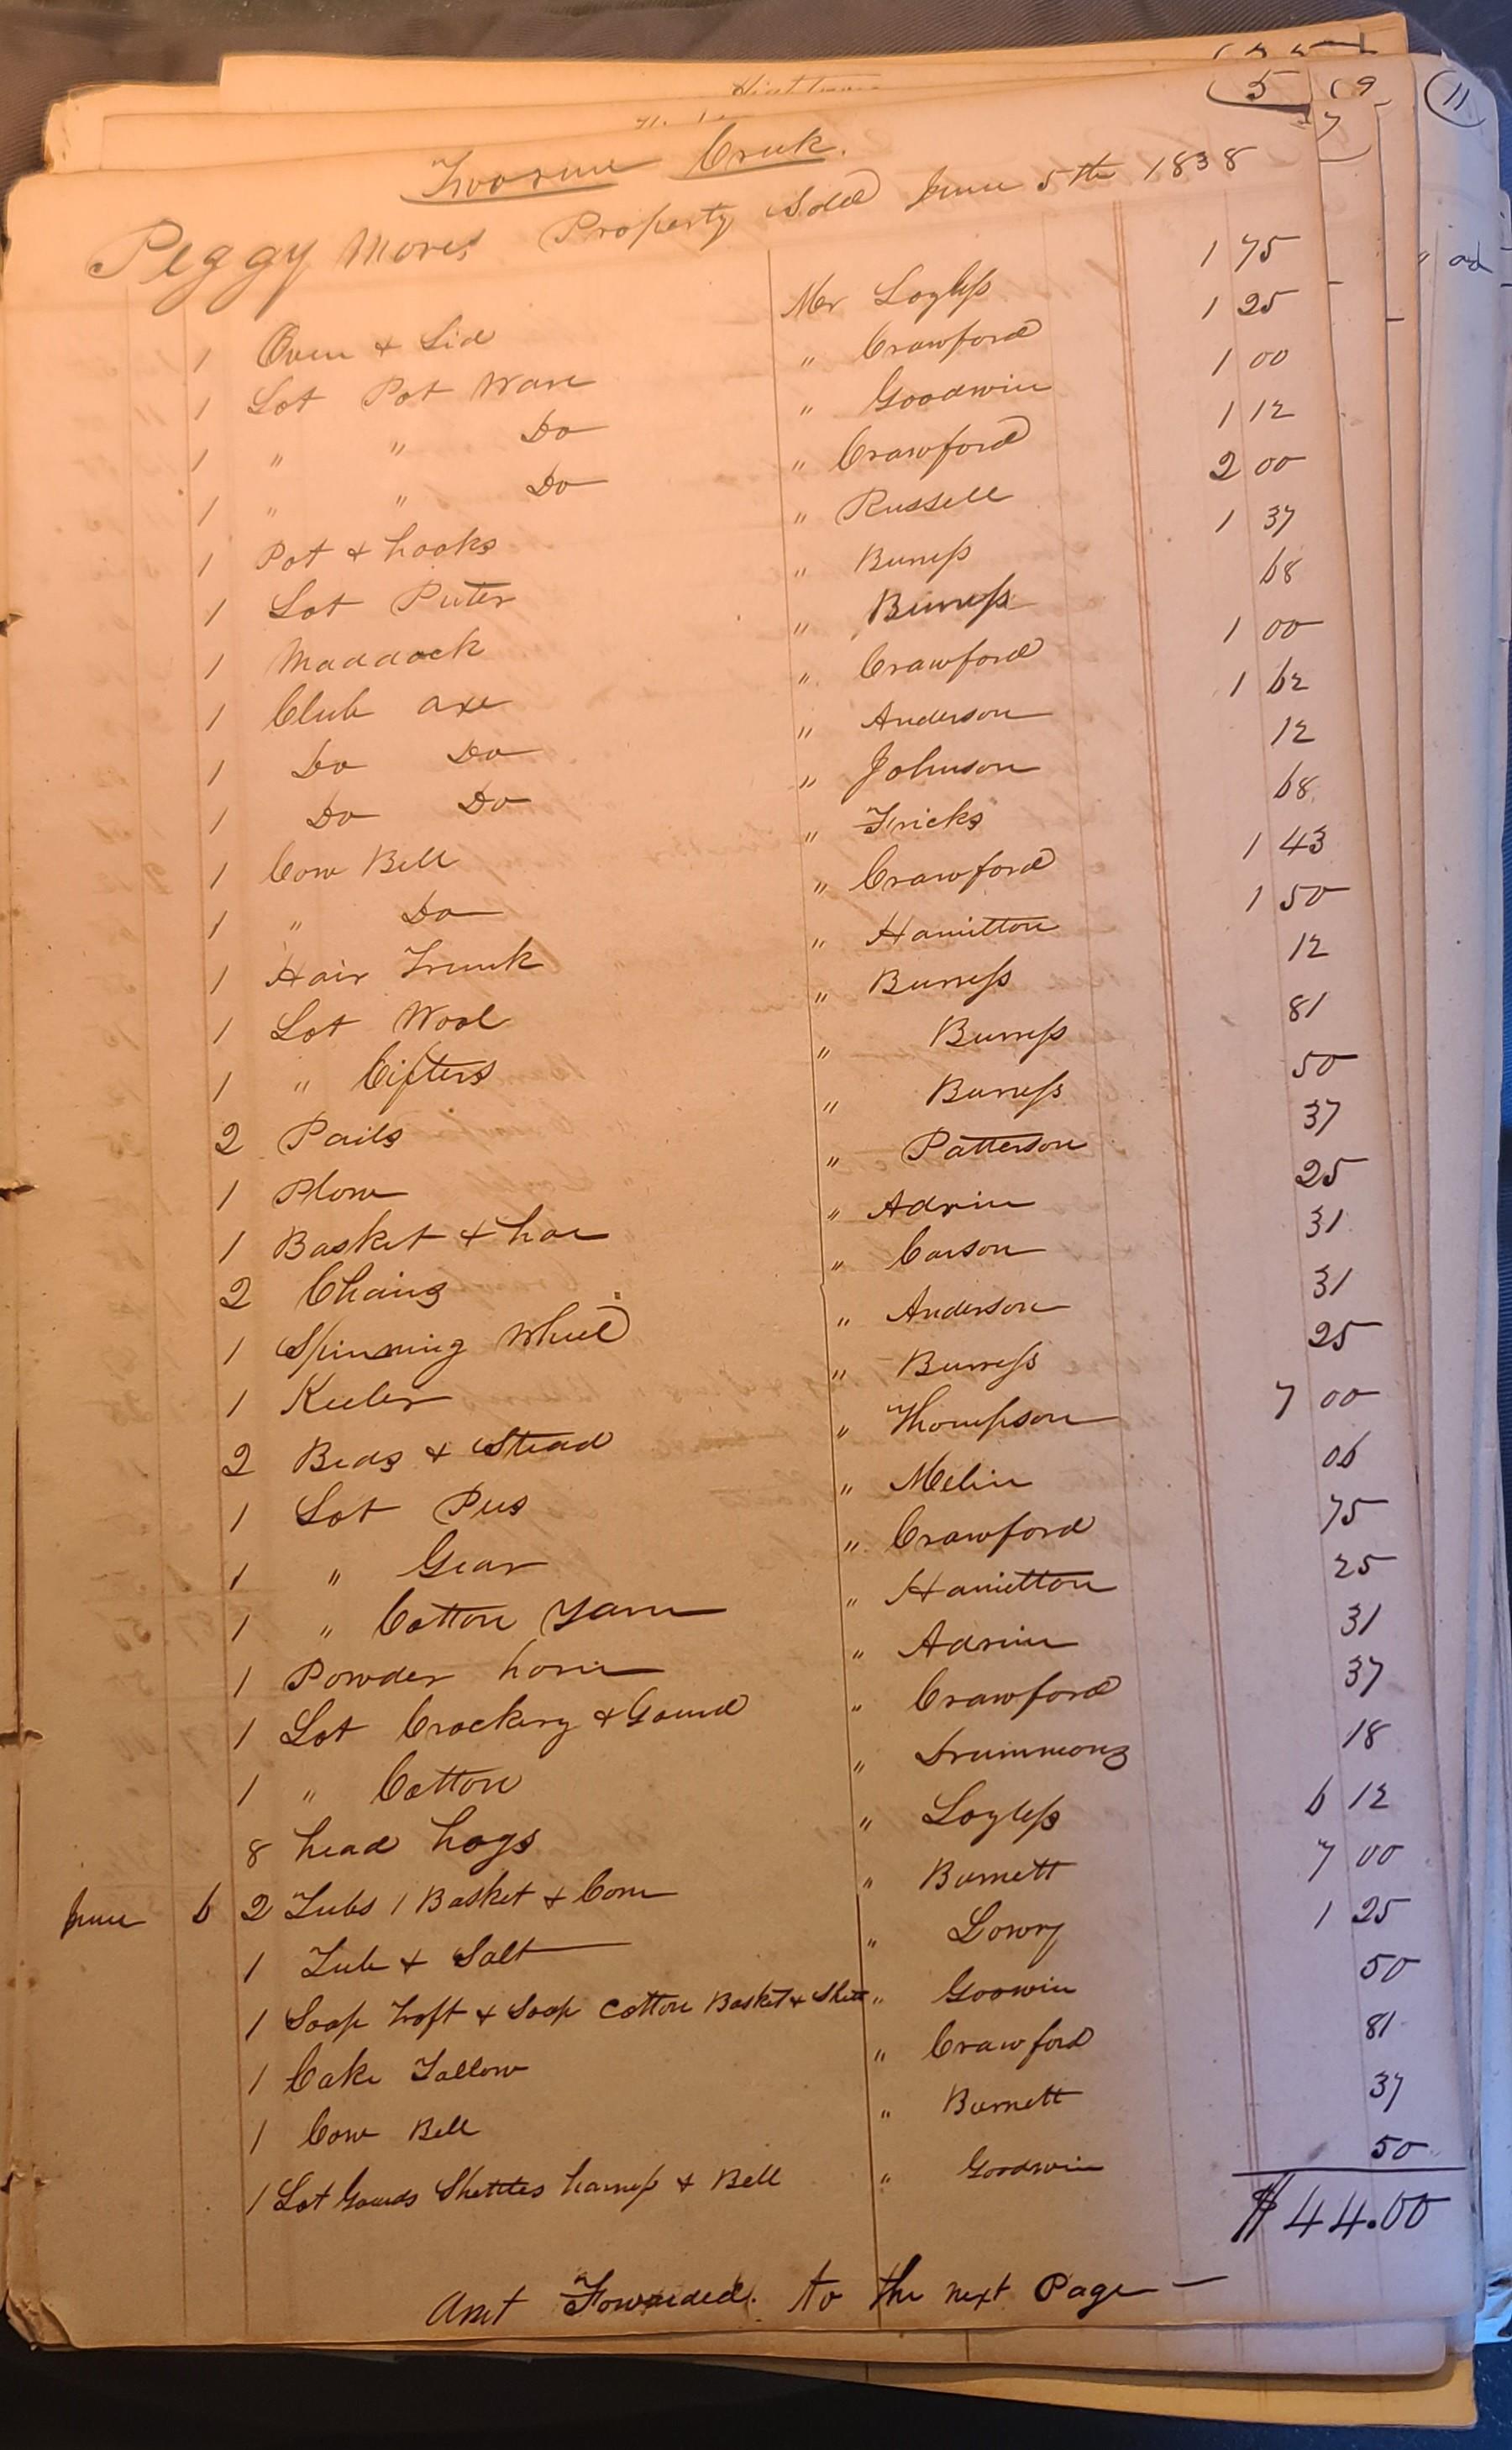 5
9
11
7
Creek.
Peggy Mores Property Sold June 5th 1838
1 Oven & Lid Mr Loyless 1 75
1 Lot Pot Ware " Crawford 1 25
1 " " Do " Goodwin 1 00
1 " " Do " Crawford 1 12
1 Pot & hooks " Russell 2 00
1 Lot Puter " Burress 1 37
1 Maddock " Burress 68
1 Club axe " Crawford 1 00
1 Do Do " Anderson 1 62
1 Do Do " Johnson 12
1 Cow Bell " Fricks 68
1 " Do " Crawford 1 43
1 Hair Trunk " Hamilton 1 50
1 Lot Wool " Burress 12
1 " Cifters " Burress 81
2 Pails " Burress 50
1 Plow " Patterson 37
1 Basket & hoe " Adrin 25
2 Chairs " Carson 31
1 Spinning Wheel " Anderson 31
1 Keeler " Burress 25
2 Beds & Stead " Thompson 7 00
1 Lot Pees " Melin 06
1 " Gear " Crawford 75
1 " Cotton Yarn " Hamilton 25
1 Powder horn " Adrin 31
1 Lot Crockery & Gourd " Crawford 37
1 " Cotton " Drummons 18
8 head hogs " Loyless 6 12
June 6 2 Tubs 1 Basket & Corn " Burnett 7 00
1 Tub & Salt " Lowry 1 25
1 Soap Troft & Soap Cotton Basket & " Goowin 50
1 Cake Tallow " Crawford 81
1 Cow Bell " Burnett 37
1 Lot Gourds Shettles harness & Bell " Goodwin 50
$44.00
Amt Forwarded. to the next Page —